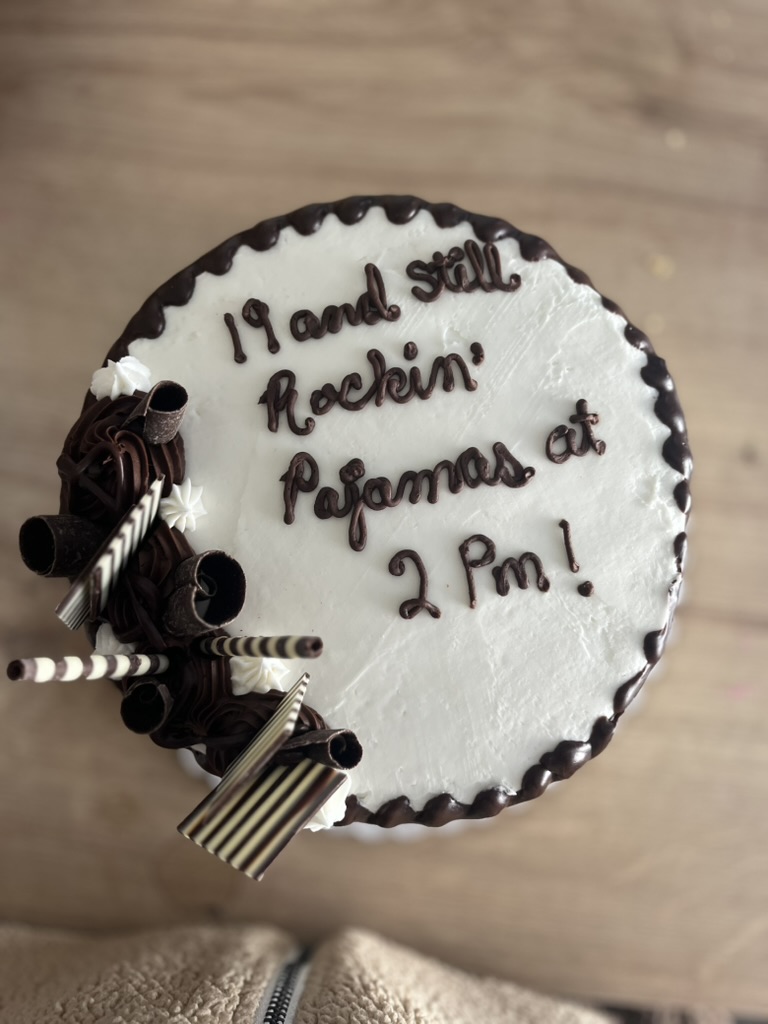 19 and still
Rockin'
Pajamas at
2 Pm!